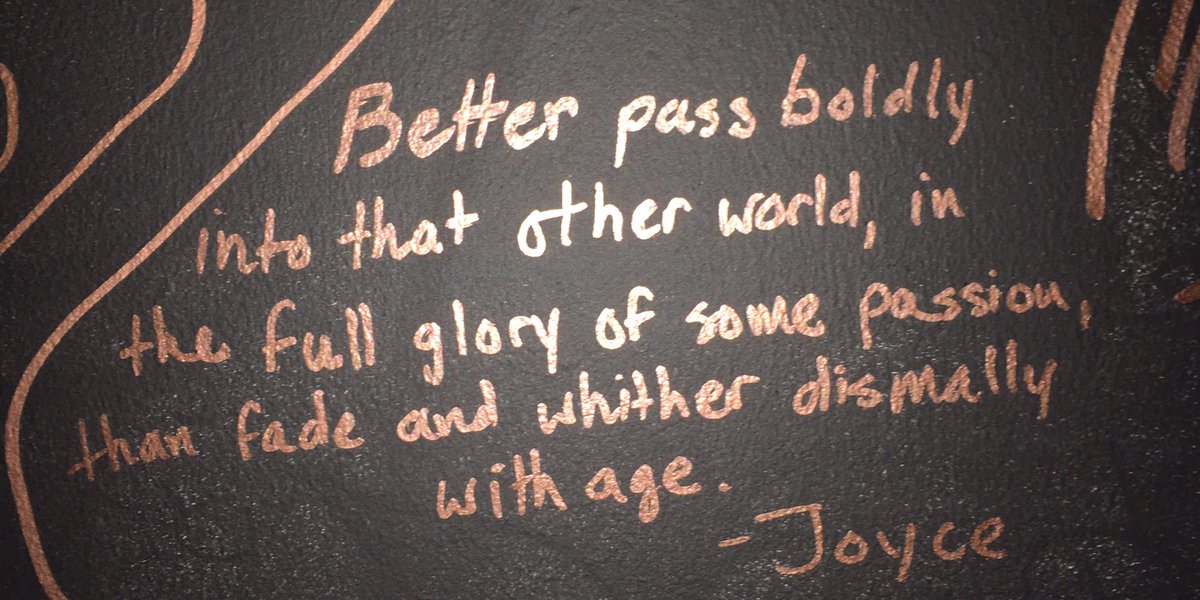 Better pass boldly
into that other world, in
the full glory of some passion,
than fade and whither dismally
with age.
- Joyce